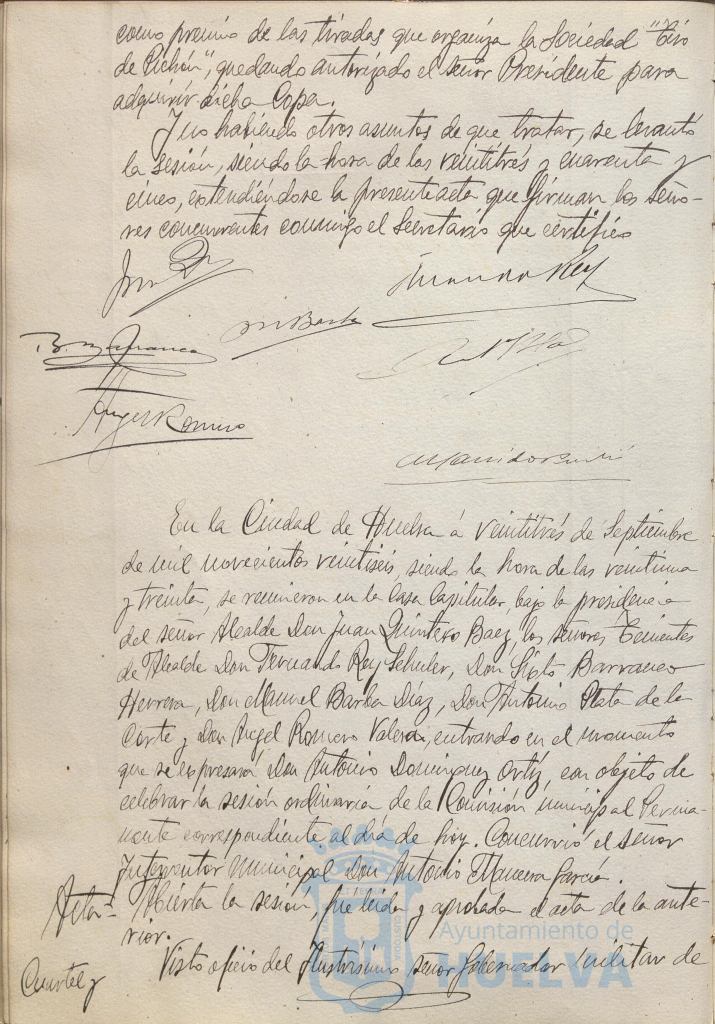 como premio de las tiradas que organiza la Sociedad "Tiro
de Pichón", quedando autorizado el señor Presidente para
adquirir dicha Copa.
Y no habiendo otros asuntos de que tratar, se levantó
la sesión, siendo la hora de las veintitrés y cuarenta y
cinco, extendiéndose la presente acta que firman los seño-
res concurrentes conmigo el Secretario que certifico
Fernando Rey
M. Barba
B
Angel Romero
En la Ciudad de Huelva á veintitrés de Septiembre
de mil novecientos veintiseis, siendo la hora de las veintiuna
y treinta, se reunieron en la Casa Capitular, bajo la presidencia
del señor Alcalde Don Juan Quintero Baez, los señores Tenientes
de Alcalde Don Fernando Rey Schuler, Don Sixto Barranco
Herrera, Don Manuel Barba Diaz, Don Antonio Plata de la
Corte y Don Angel Romero Valera, entrando en el momento
que se expresará Don Antonio Dominguez Ortiz, con objeto de
celebrar la sesión ordinaria de la Comisión municipal Perma-
nente correspondiente al día de hoy. Concurrió el señor
Interventor Municipal Don Antonio Garcia.
Acta=
Abierta la sesión, fué leida y aprobada el acta de la ante-
rior.
Cuartel y
Visto oficio del Ilustrísimo señor Gobernador Militar de
Ayuntamiento de
HUELVA